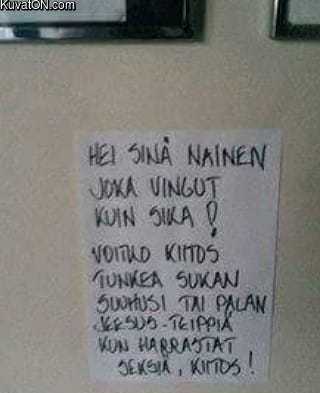 KuvatON.com
HEI SINÄ NAINEN
JOKA VINGUT
KUIN SIKA!
VOITKO KIITOS
TUNKEA SUKAN
SUUHUSI TAI PALAN
JEESUS-TEIPPIÄ
KUN HARRASTAT
SEKSIÄ, KIITOS!